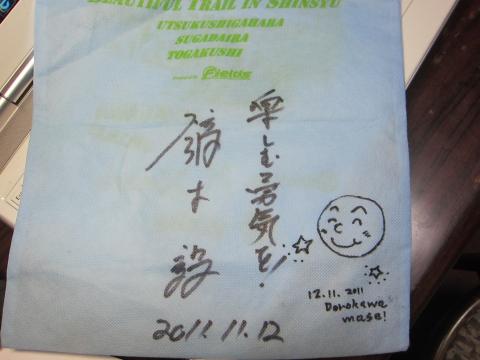 BEAUTIFUL TRAIL IN SHINSYU
UTSUKUSHIGAHARA
SUGADAIRA
TOGAKUSHI
Fields
楽しむ勇気を!
鏑木 毅
2011.11.12
12.11.2011
mase!